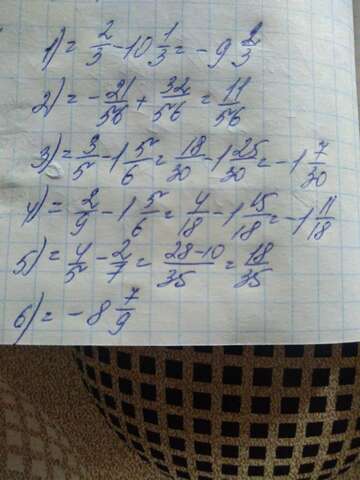 1) = 2/3 - 10 1/3 = - 9 2/3
2) = - 21/56 + 32/56 = 11/56
3) = 3/5 - 1 5/6 = 18/30 - 1 25/30 = - 1 7/30
4) = 2/9 - 1 5/6 = 4/18 - 1 15/18 = - 1 11/18
5) = 4/5 - 2/7 = 28-10/35 = 18/35
6) = - 8 7/9